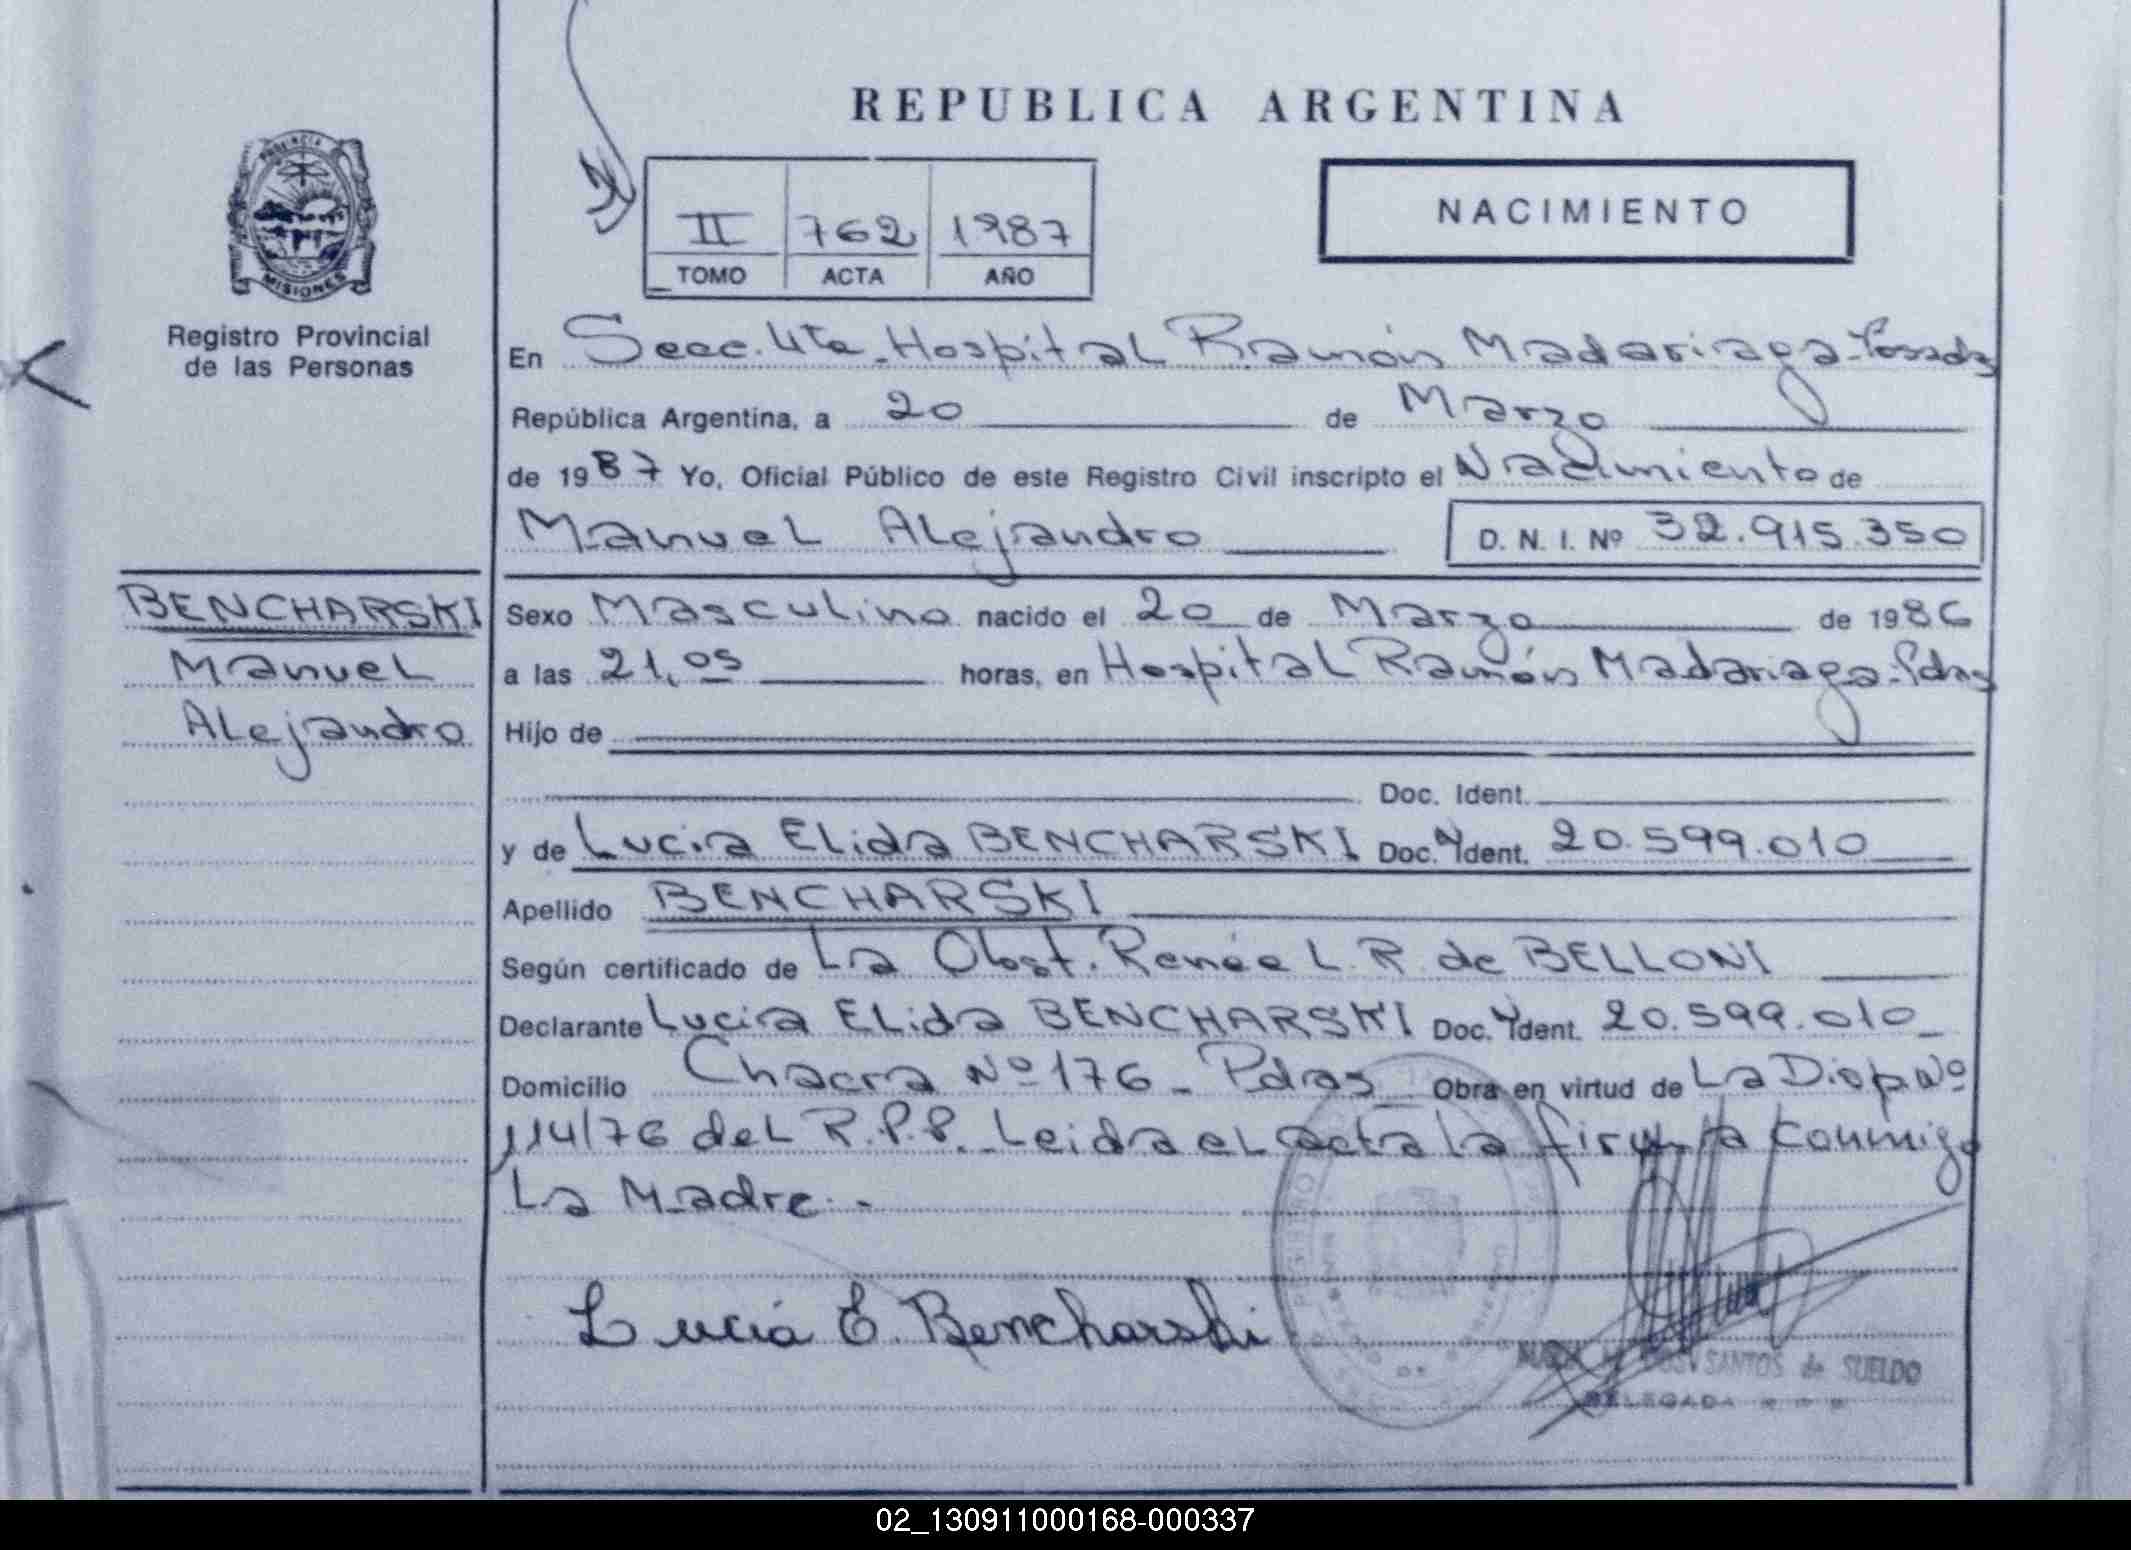 REPUBLICA ARGENTINA
PROVINCIA
MISIONES
Registro Provincial
de las Personas
II 762 1987
TOMO ACTA AÑO
NACIMIENTO
En Secc. 4ta. Hospital Ramón Madariaga-Posadas
República Argentina, a 20 de Marzo
de 1987 Yo, Oficial Público de este Registro Civil inscripto el Nacimiento de
Manuel Alejandro D. N. I. Nº 32.915.350
BENCHARSKI
Manuel
Alejandro
Sexo Masculino nacido el 20 de Marzo de 1986
a las 21,05 horas, en Hospital Ramón Madariaga-Pdas
Hijo de
Doc. Ident.
y de Lucia Elida BENCHARSKI Doc. N Ident. 20.599.010
Apellido BENCHARSKI
Según certificado de La Obst. Renée L. R. de BELLONI
Declarante Lucia Elida BENCHARSKI Doc. N Ident. 20.599.010
Domicilio Chacra Nº 176 - Pdas Obra en virtud de La Disp Nº
114/76 del R.P.P. - Leida el acta la firma conmigo
La Madre. -
Lucia E. Bencharski
SANTOS de SUELDO
DELEGADA
02_130911000168-000337